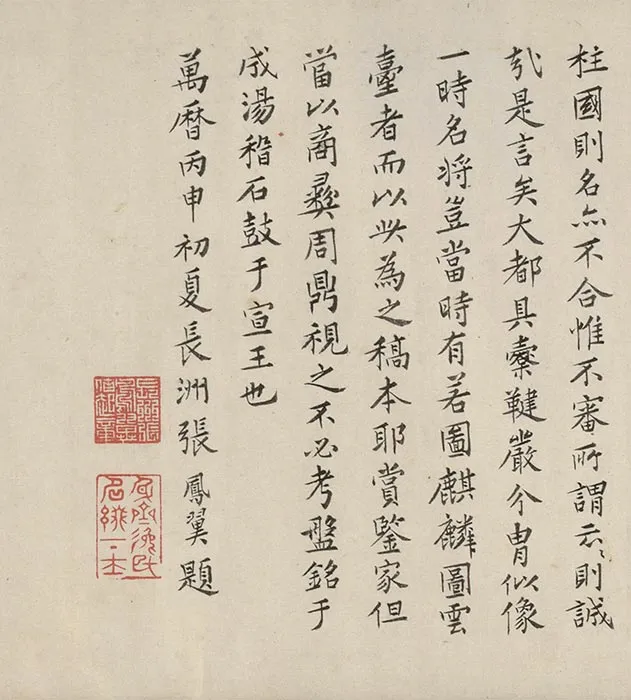 柱國則名亦不合惟不審所謂云云則誠
哉是言矣大都具櫜鞬嚴介胄似像
一時名將豈當時有若圖麒麟圖雲
臺者而以此為之稿本耶賞鑒家但
當以商彝周鼎視之不必考盤銘于
成湯稽石鼓于宣王也
萬曆丙申初夏長洲張鳳翼題